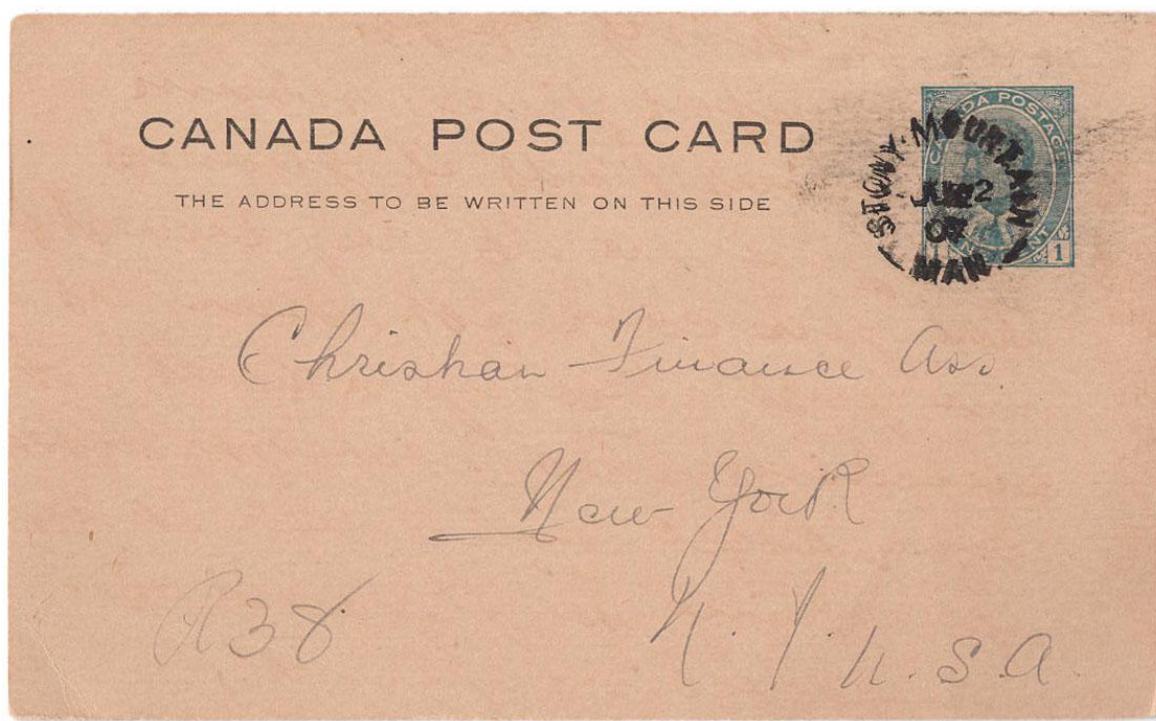 CANADA POST CARD
THE ADDRESS TO BE WRITTEN ON THIS SIDE
CANADA POSTAGE
ONE CENT
1 1
STONY MOUNTAIN
MAN.
Christian Finance Ass.
New York
N.Y. U.S.A.
R38